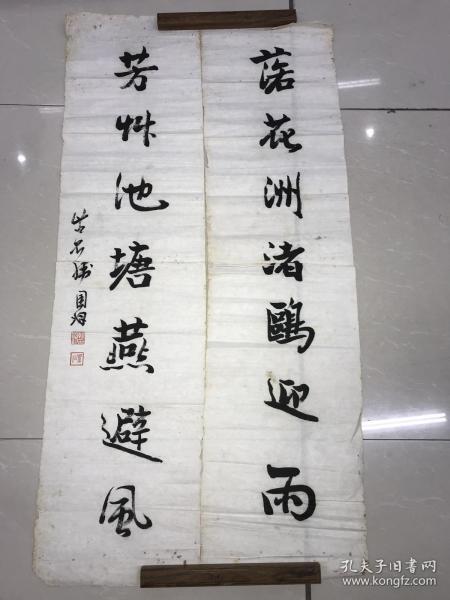 落花洲渚鷗迎雨
芳艸池塘燕避風
孔夫子旧书网
www.kongfz.com